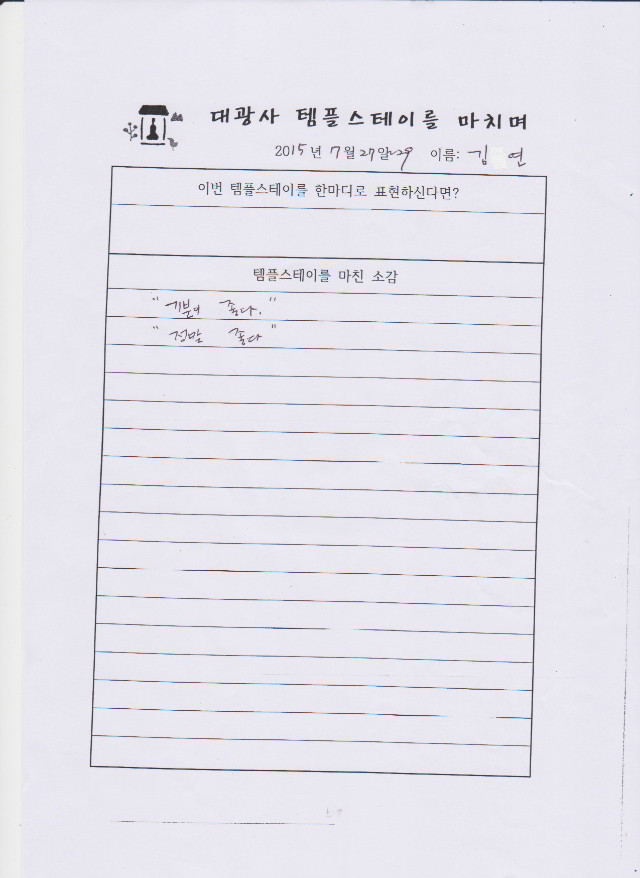 대광사 템플스테이를 마치며
2015년 7월 27일~29 이름: 김 연
이번 템플스테이를 한마디로 표현하신다면?
템플스테이를 마친 소감
"기분이 좋다."
"정말 좋다"